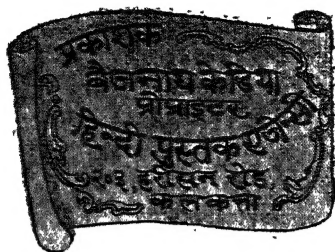 प्रकाशक
बैजनाथ केडिया
प्रोप्राइटर
हिन्दी पुस्तक एजेन्सी
२०३, हरीसन रोड
कलकत्ता